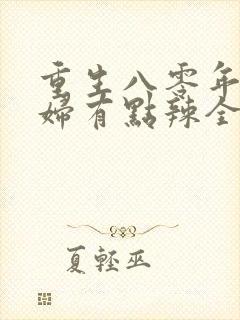 重生八零年
婦有點辣全
夏輕巫